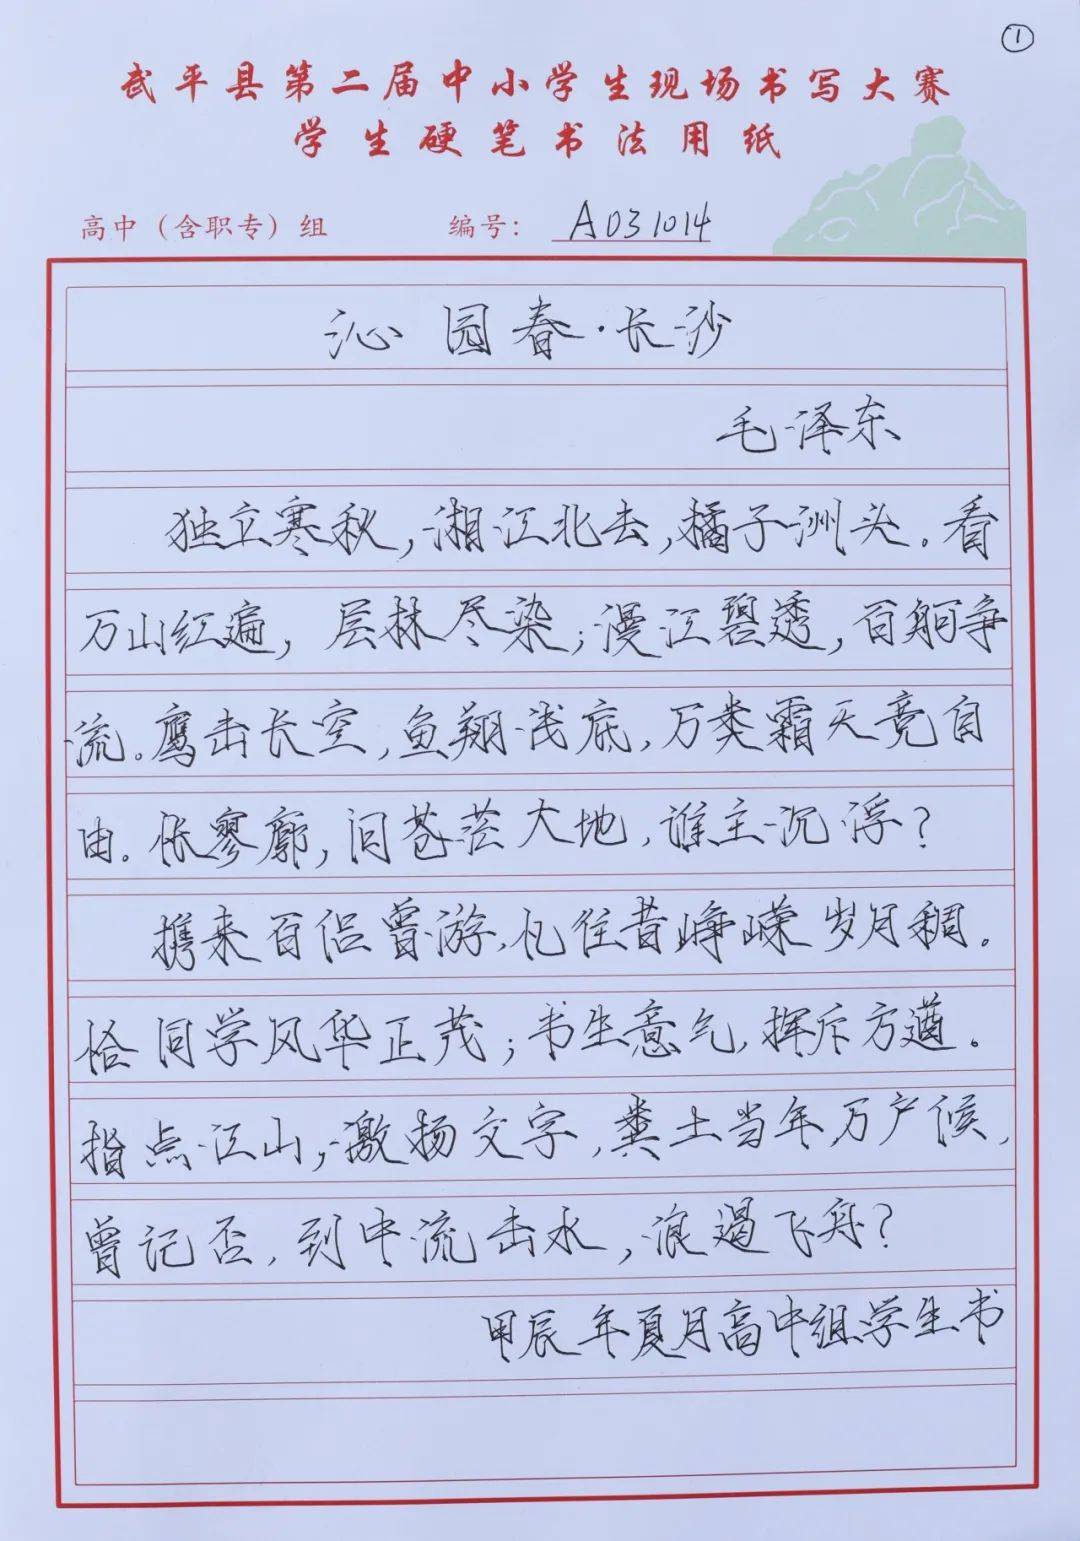 ①
武平县第二届中小学生现场书写大赛
学生硬笔书法用纸
高中（含职专）组 编号：A031014
沁园春·长沙
毛泽东
独立寒秋，湘江北去，橘子洲头。看
万山红遍，层林尽染；漫江碧透，百舸争
流。鹰击长空，鱼翔浅底，万类霜天竞自
由。怅寥廓，问苍茫大地，谁主沉浮？
携来百侣曾游，忆往昔峥嵘岁月稠。
恰同学风华正茂；书生意气，挥斥方遒。
指点江山，激扬文字，粪土当年万户侯，
曾记否，到中流击水，浪遏飞舟？
甲辰年夏月高中组学生书